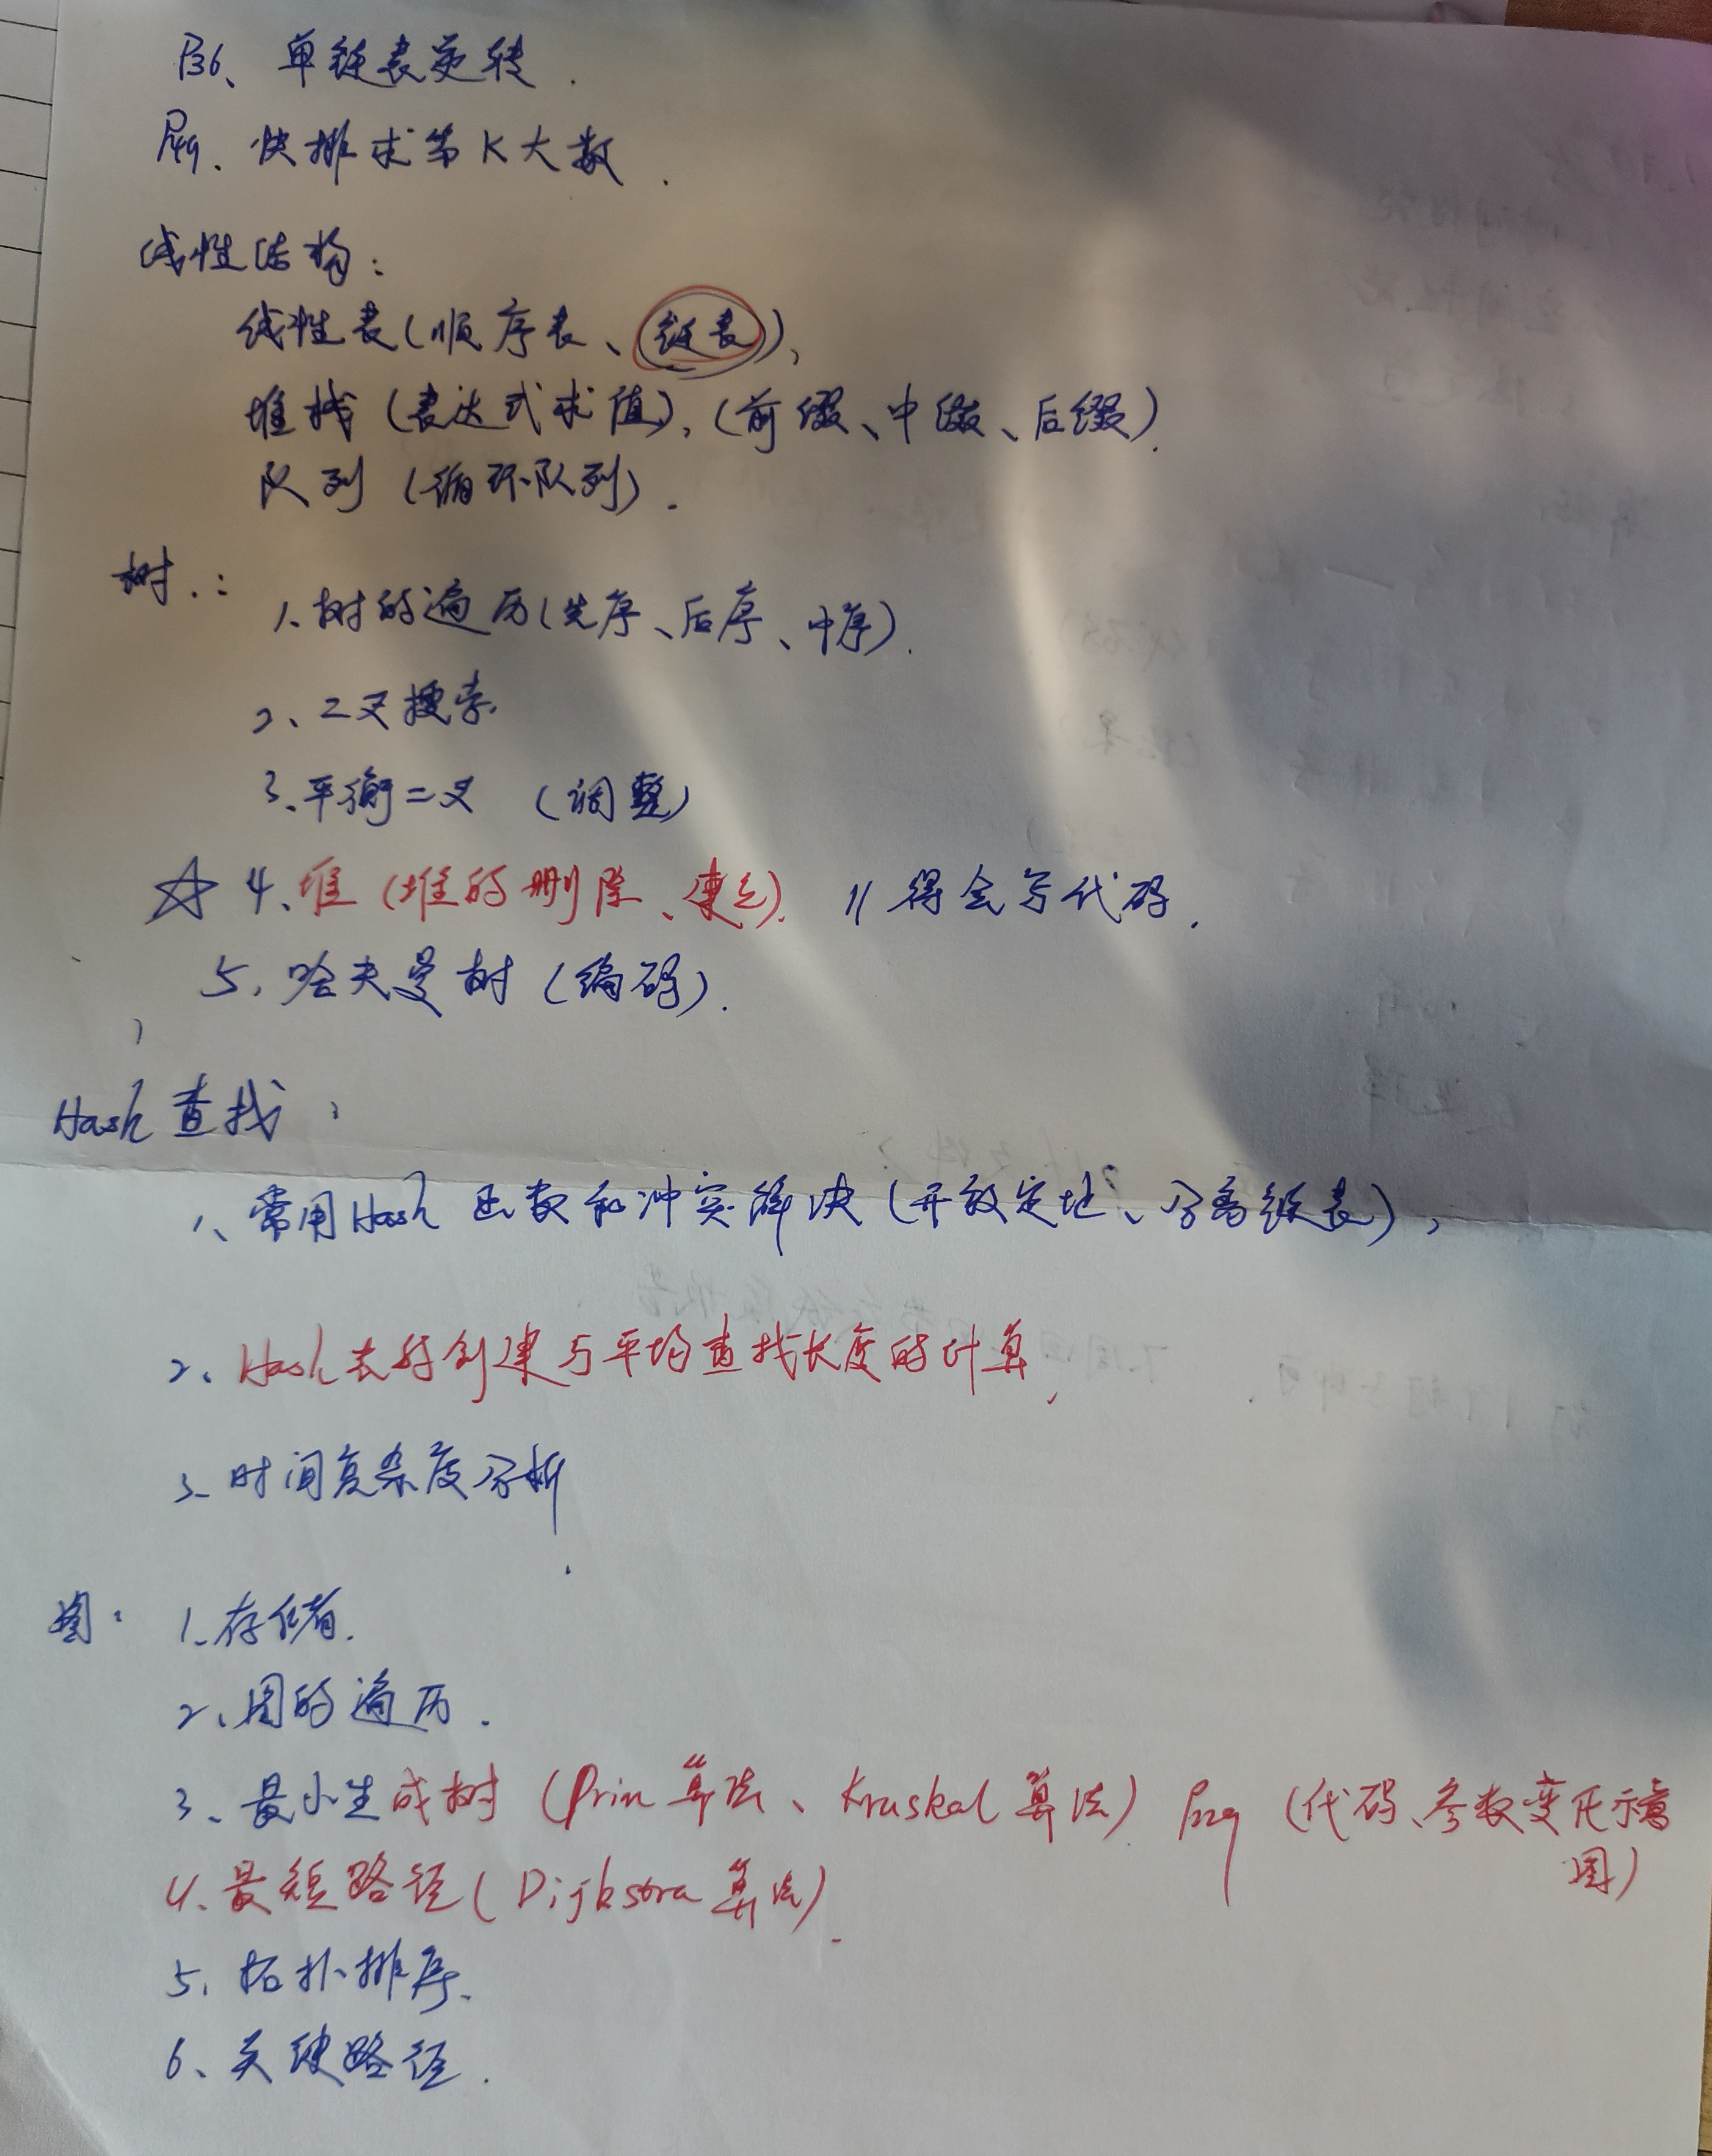 P36、单链表逆转.
P49.快排求第K大数.
线性结构:
线性表(顺序表、链表),
堆栈(表达式求值),(前缀、中缀、后缀).
队列(循环队列).
树.:
1.树的遍历(先序、后序、中序).
2、二叉搜索
3.平衡二叉 (调整)
☆ 4、堆(堆的删除、建立). // 得会写代码.
5.哈夫曼树(编码).
Hash查找:
1、常用Hash函数和冲突解决(开放定址、分离链表),
2、Hash表的创建与平均查找长度的计算,
3.时间复杂度分析.
图: 1.存储.
2、图的遍历.
3、最小生成树(Prim算法、Kruskal算法). (代码、参数变化示意
图)
4.最短路径(Dijkstra算法).
5.拓扑排序.
6、关键路径.